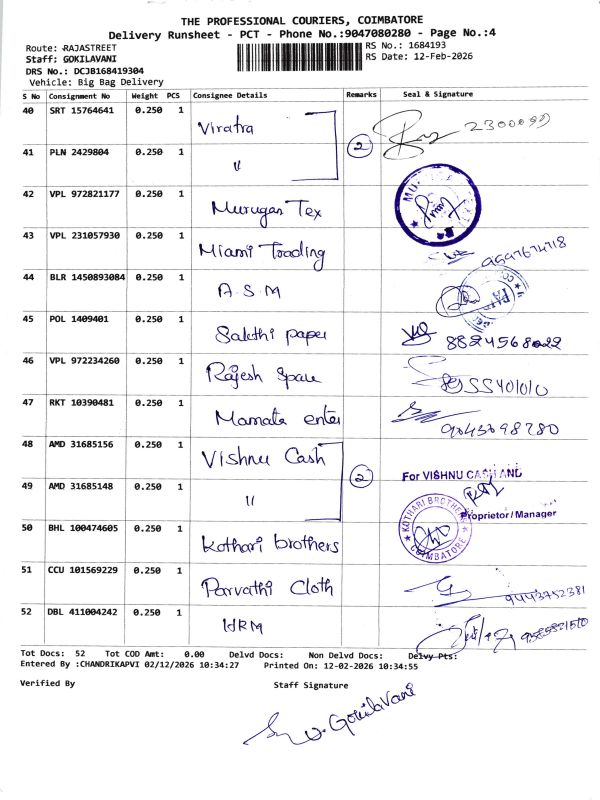 THE PROFESSIONAL COURIERS, COIMBATORE
Delivery Runsheet - PCT - Phone No.:9047080280 - Page No.:4
Route: RAJASTREET
RS No.: 1684193
Staff: GOKILAVANI
RS Date: 12-Feb-2026
DRS No.: DCJB168419304
Vehicle: Big Bag Delivery
S No Consignment No Weight PCS Consignee Details Remarks Seal & Signature
40 SRT 15764641 0.250 1 Viratra
41 PLN 2429804 0.250 1 " 2
42 VPL 972821177 0.250 1 Murugan Tex
43 VPL 231057930 0.250 1 Miami Trading
44 BLR 1450893084 0.250 1 A.S.M
45 POL 1409401 0.250 1 Sakthi paper
46 VPL 972234260 0.250 1 Rajesh Spare
47 RKT 10390481 0.250 1 Mamata enter
48 AMD 31685156 0.250 1 Vishnu Cash For VISHNU CASH AND
49 AMD 31685148 0.250 1 " 2 Proprietor/Manager
50 BHL 100474605 0.250 1 Kothari brothers KOTHARI BROTHERS COIMBATORE
51 CCU 101569229 0.250 1 Parvathi Cloth 9443752381
52 DBL 411004242 0.250 1 HRM
Tot Docs: 52 Tot COD Amt: 0.00 Delvd Docs: Non Delvd Docs: Delvy Pts:
Entered By :CHANDRIKAPVI 02/12/2026 10:34:27 Printed On: 12-02-2026 10:34:55
Verified By Staff Signature
V. Gokilavani